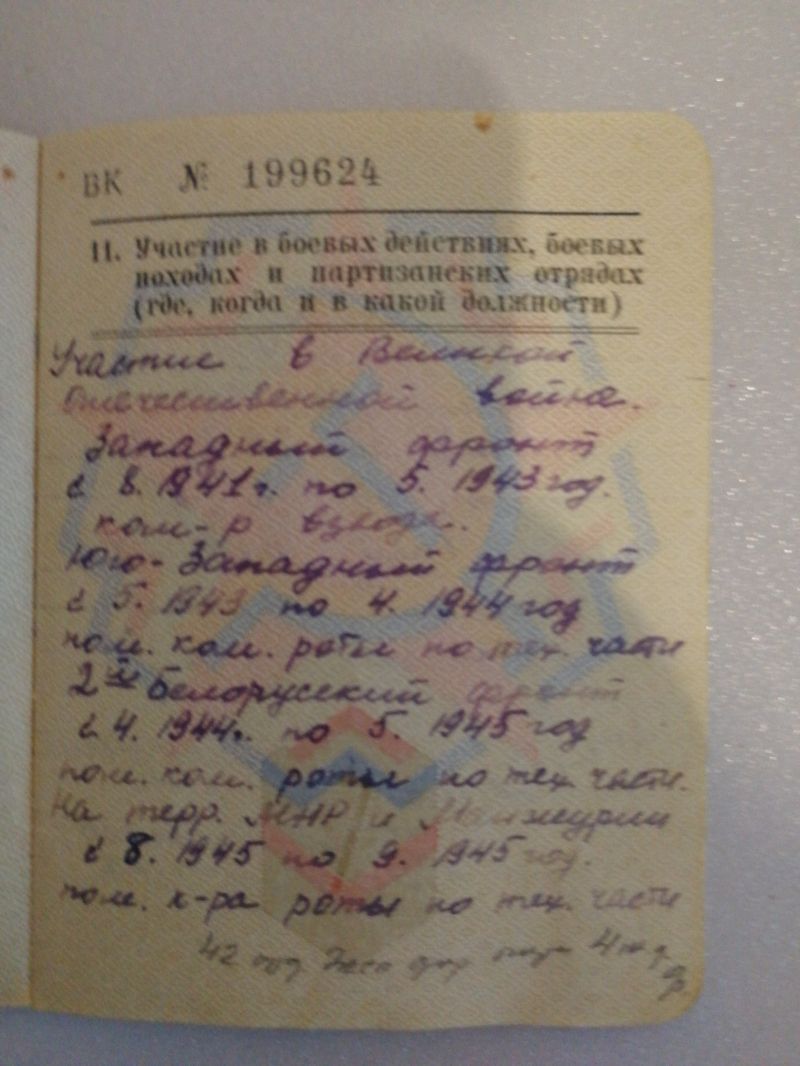 ВК № 199624
11. Участие в боевых действиях, боевых
походах и партизанских отрядах
(где, когда и в какой должности)
Участие в Великой
Отечественной войне.
Западный фронт
с 8. 1941 г. по 5. 1943 год.
ком-р взвода.
Юго-Западный фронт
с 5. 1943 по 4. 1944 год
пом. ком. роты по тех. части
2ий Белорусский фронт
с 4. 1944г. по 5. 1945 год
пом. ком. роты по тех. части.
На терр. МНР и Манжурии
с 8. 1945 по 9. 1945 год.
пом. к-ра роты по тех. части
42